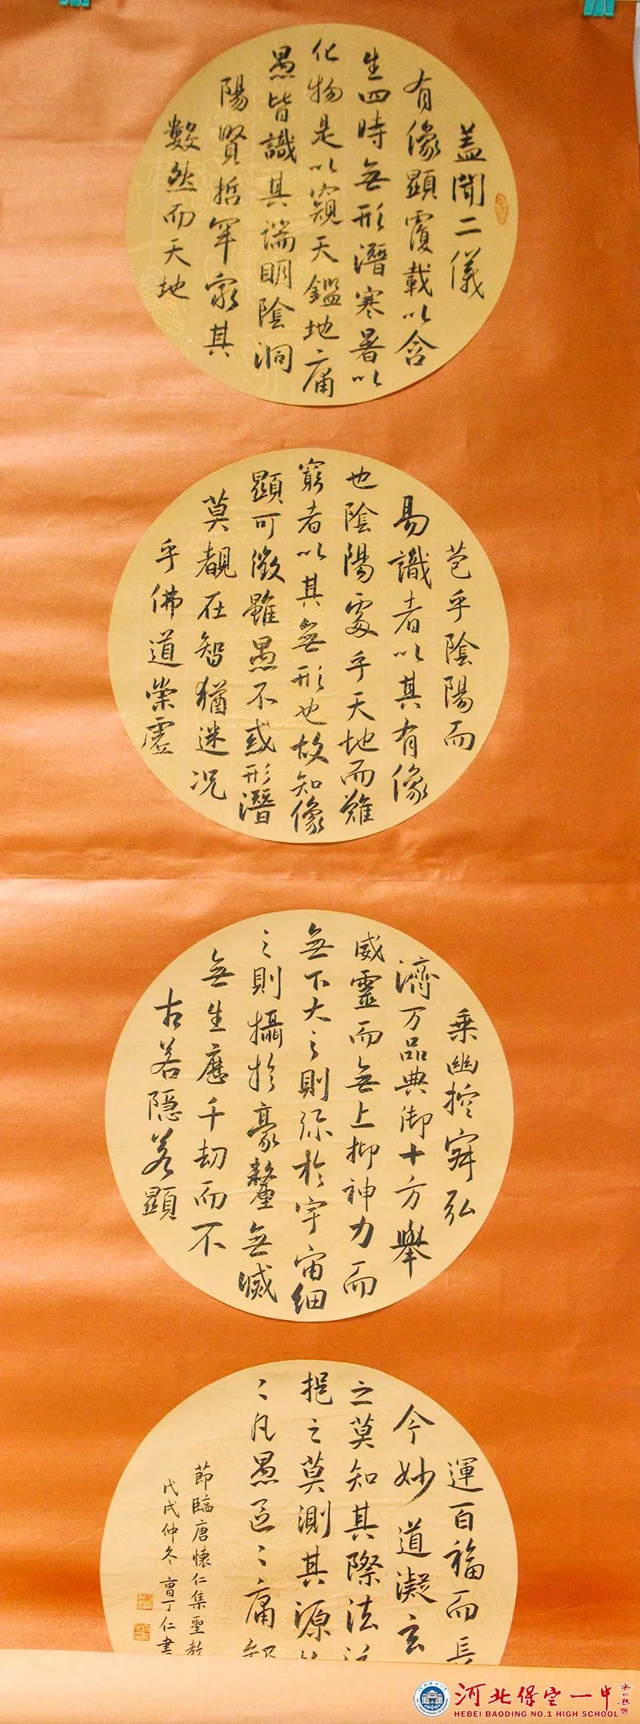 盖聞二儀
有像顯覆載以含
生四時無形潛寒暑以
化物是以窺天鑑地庸
愚皆識其端明陰洞
陽賢哲罕窮其
數然而天地
苞乎陰陽而
易識者以其有像
也陰陽處乎天地而難
窮者以其無形也故知像
顯可徵雖愚不惑形潛
莫覩在智猶迷况
乎佛道崇虛
乘幽控寂弘
濟万品典御十方舉
威靈而無上抑神力而
無下大之則弥於宇宙細
之則攝於豪釐無滅
無生歷千劫而不
古若隐若顯
運百福而長
今妙道凝玄
之莫知其際法
挹之莫測其源
〻凡愚區〻庸
節臨唐懷仁集聖教
戊戌仲冬曹丁仁書
河北保定一中
HEBEI BAODING NO.1 HIGH SCHOOL